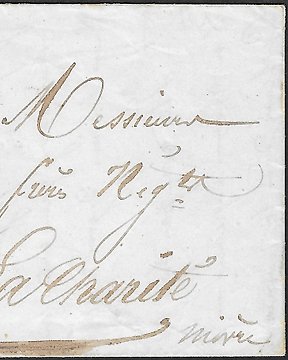 Messieurs
frères Négts
La Charité
nièvre